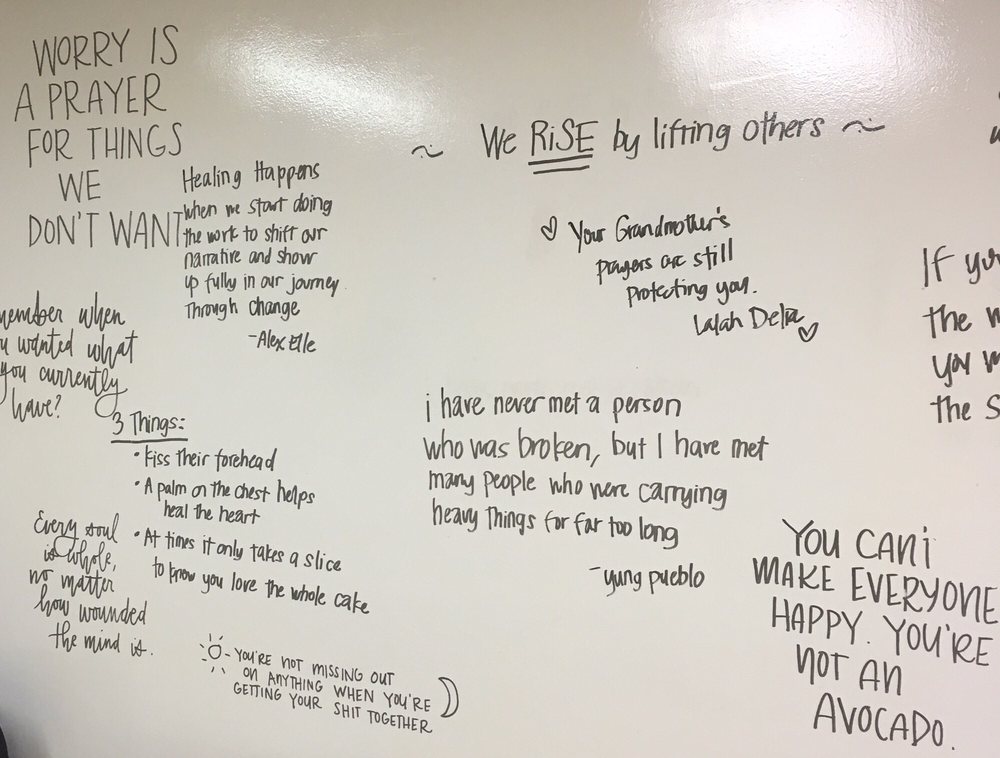 WORRY IS
A PRAYER
FOR THINGS
WE
DON'T WANT
Healing Happens
when we start doing
the work to shift our
narrative and show
up fully in our journey
through change
-Alex Elle
~ We RISE by lifting others ~
Your Grandmother's
prayers are still
protecting you.
Lalah Delia
If you
the
you
the
member when
wanted what
you currently
have?
3 Things:
• Kiss their forehead
• A palm on the chest helps
heal the heart
• At times it only takes a slice
to know you love the whole cake
i have never met a person
who was broken, but I have met
many people who were carrying
heavy things for far too long
- yung pueblo
Every soul
is whole,
no matter
how wounded
the mind is.
YOU'RE NOT MISSING OUT
ON ANYTHING WHEN YOU'RE
GETTING YOUR SHIT TOGETHER
YOU CAN'T
MAKE EVERYONE
HAPPY. YOU'RE
NOT AN
AVOCADO.